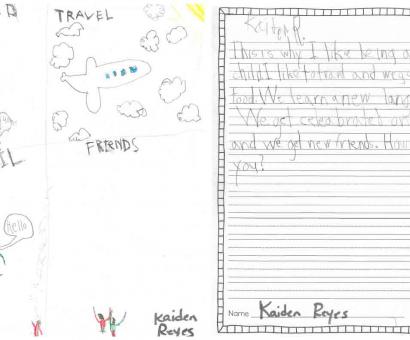 TRAVEL
FRIENDS
Hello
Kaiden
Reyes
Kaiden R.
This is why I like being a
child I like to travel and we ge
food. We learn a new lan
We get celebrated
and we get new friends. How
you?
Name Kaiden Reyes